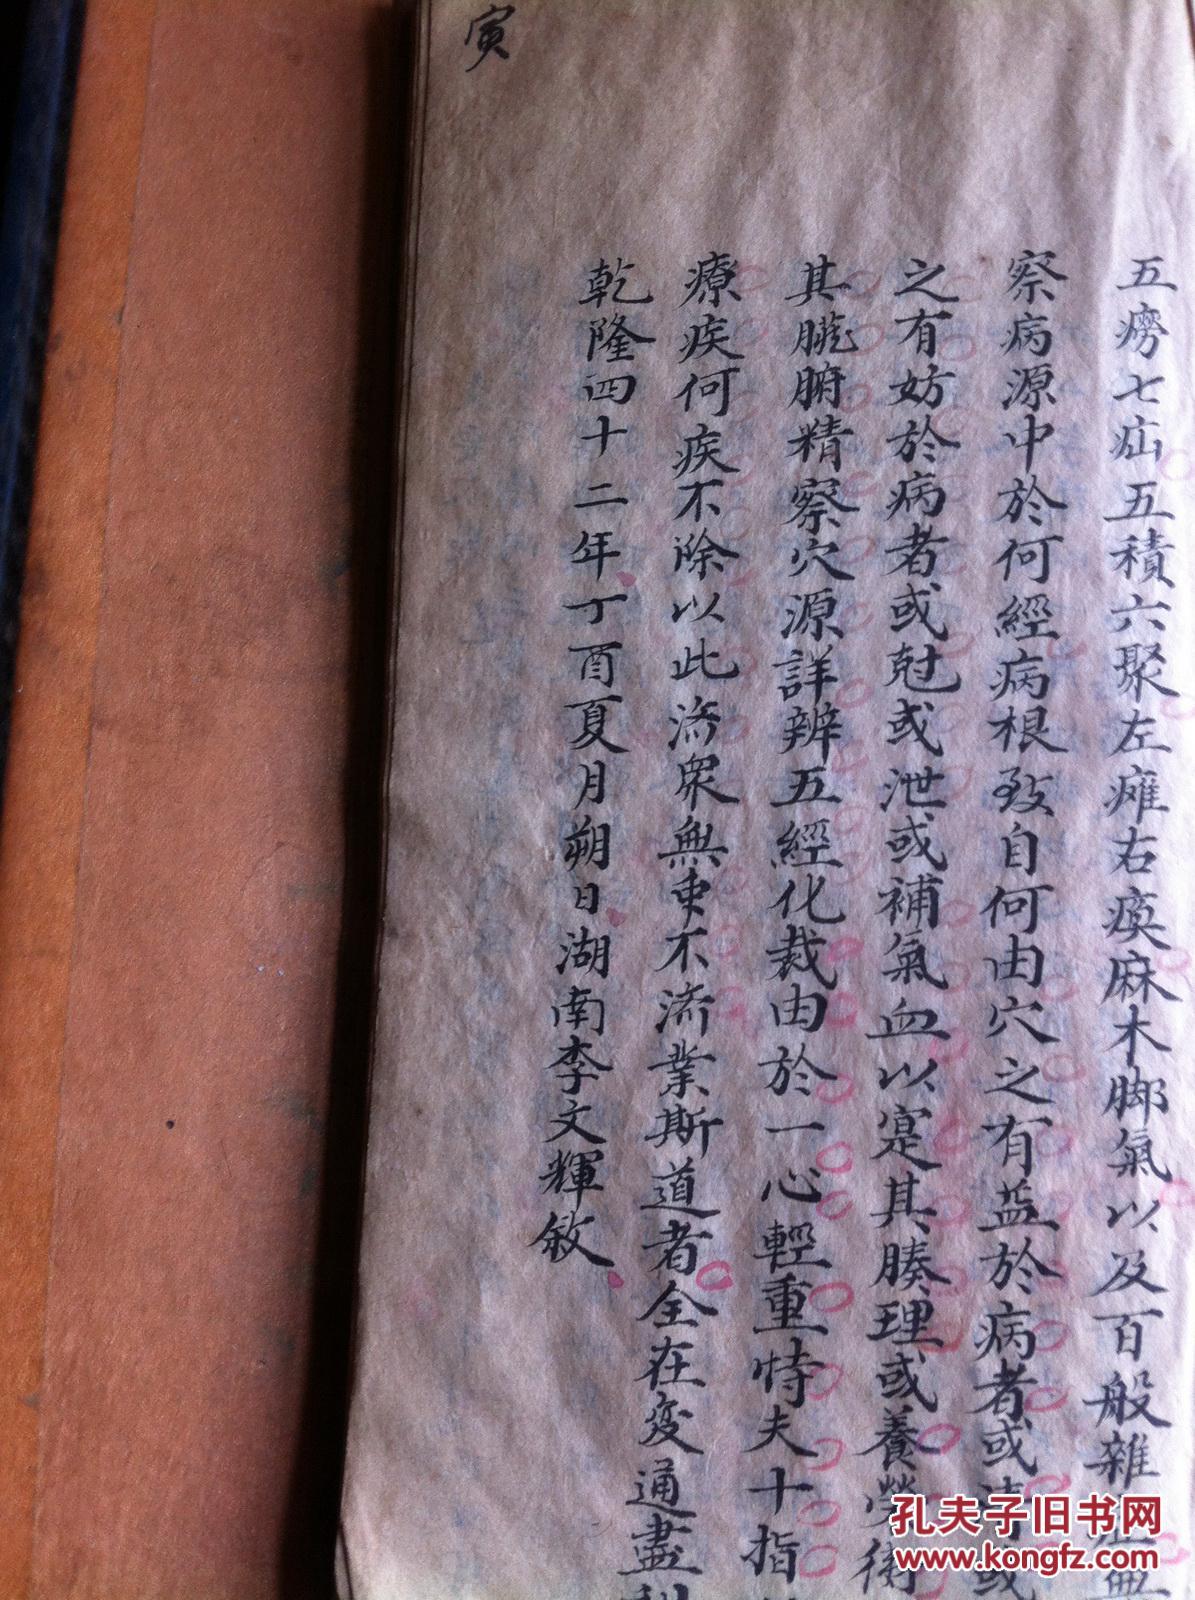 寅
五癆七疝五積六聚左癱右瘓麻木腳氣以及百般雜
察病源中於何經病根致自何由穴之有益於病者或
之有妨於病者或尅或泄或補氣血以寔其腠理或養
其臟腑精察穴源詳辨五經化裁由於一心輕重恃夫十指
療疾何疾不除以此濟衆無衆不濟業斯道者全在变通盡
乾隆四十二年丁酉夏月朔日湖南李文輝敘
孔夫子旧书网
www.kongfz.com